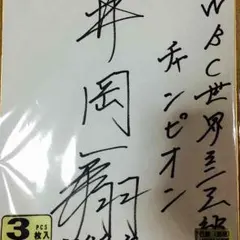 WBC世界
チャンピオン
井岡一翔
3 PCS
枚入